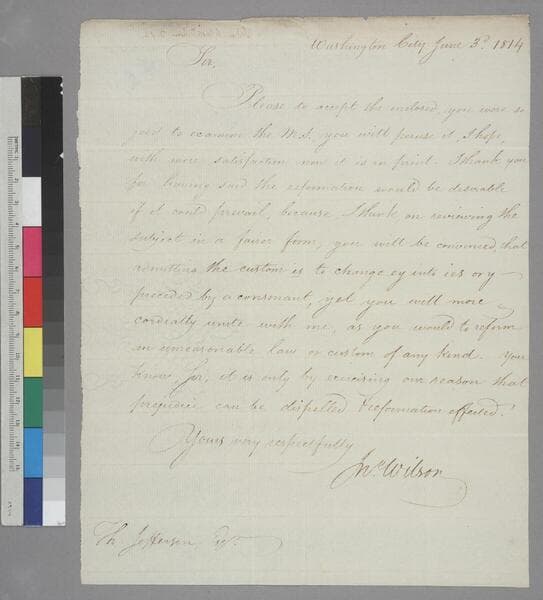 Washington City June 3d. 1814
Sir,
Please to accept the enclosed, you were so
good to examine the MS, you will peruse it, I hope,
with more satisfaction now it is in print. I thank you
for having said the reformation would be desirable
if it could prevail, because, I think on reviewing the
subject in a fairer form, you will be convinced, that
the custom is to change ey into ies or y
preceded by a consonant, yet you will more
cordially unite with me, as you would to reform
an unreasonable law or custom of any kind. You
know Sir, it is only by exercising our reason that
prejudice can be dispelled & reformation effected.
Yours very respectfully
Jno. Wilson
Th. Jefferson Esqr.